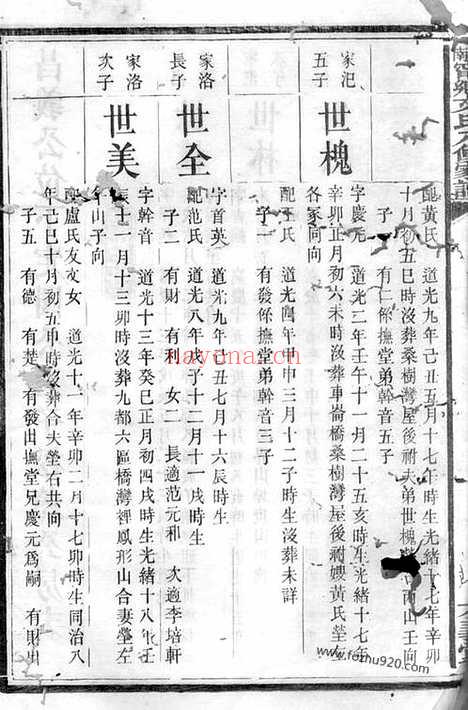 配黄氏 道光九年己丑五月十七 時生光緒十七年辛卯
十月初五巳時沒葬桑樹灣屋後祔夫弟世槐 山壬向
子一 有仁係撫堂弟幹音五子
家汜
五子
世槐
字慶元 道光二年壬午十一月二十五亥時生光緒十七年
辛卯正月初六未時沒葬車崙橋桑樹灣屋後祔嫂黃氏塋左
各家向向
配王氏 道光四年甲申三月十二子時生沒葬未詳
子一 有發係撫堂弟幹音三子
家洛
長子
世全
字首英 道光九年 丑七月十六辰時生
配范氏 道光八年戊子十二月十一戌時生
子二 有財 有利 女二 長適范元和 次適李培軒
家洛
次子
世美
字幹音 道光十三年癸巳正月初四戌時生光緒十八年壬
辰十一月十三卯時沒葬九都六區橋灣裡鳳形山合妻塋左
山子向
配盧氏友文女 道光十一年辛卯二月十七卯時生同治八
年己巳十月初五申時沒葬合夫塋右共向
子五 有德 有楚 有發出撫堂兄慶元爲嗣 有財出
hayona.cn
www.fozhu920.com